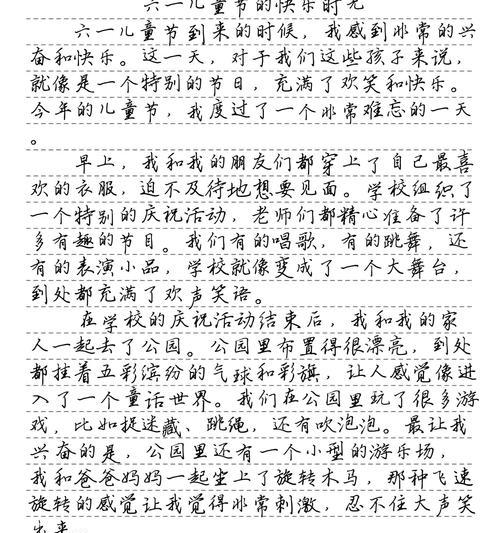 六一儿童节的快乐时光
六一儿童节到来的时候，我感到非常的兴
奋和快乐。这一天，对于我们这些孩子来说，
就像是一个特别的节日，充满了欢笑和快乐。
今年的儿童节，我度过了一个非常难忘的一天
。
早上，我和我的朋友们都穿上了自己最喜
欢的衣服，迫不及待地想要见面。学校组织了
一个特别的庆祝活动，老师们都精心准备了许
多有趣的节目。我们有的唱歌，有的跳舞，还
有的表演小品，学校就像变成了一个大舞台，
到处都充满了欢声笑语。
在学校的庆祝活动结束后，我和我的家
人一起去了公园。公园里布置得很漂亮，到处
都挂着五彩缤纷的气球和彩旗，让人感觉像进
入了一个童话世界。我们在公园里玩了很多游
戏，比如捉迷藏、跳绳，还有吹泡泡。最让我
兴奋的是，公园里还有一个小型的游乐场，
我和爸爸妈妈一起坐上了旋转木马，那种飞速
旋转的感觉让我觉得非常刺激，忍不住大声笑
出来